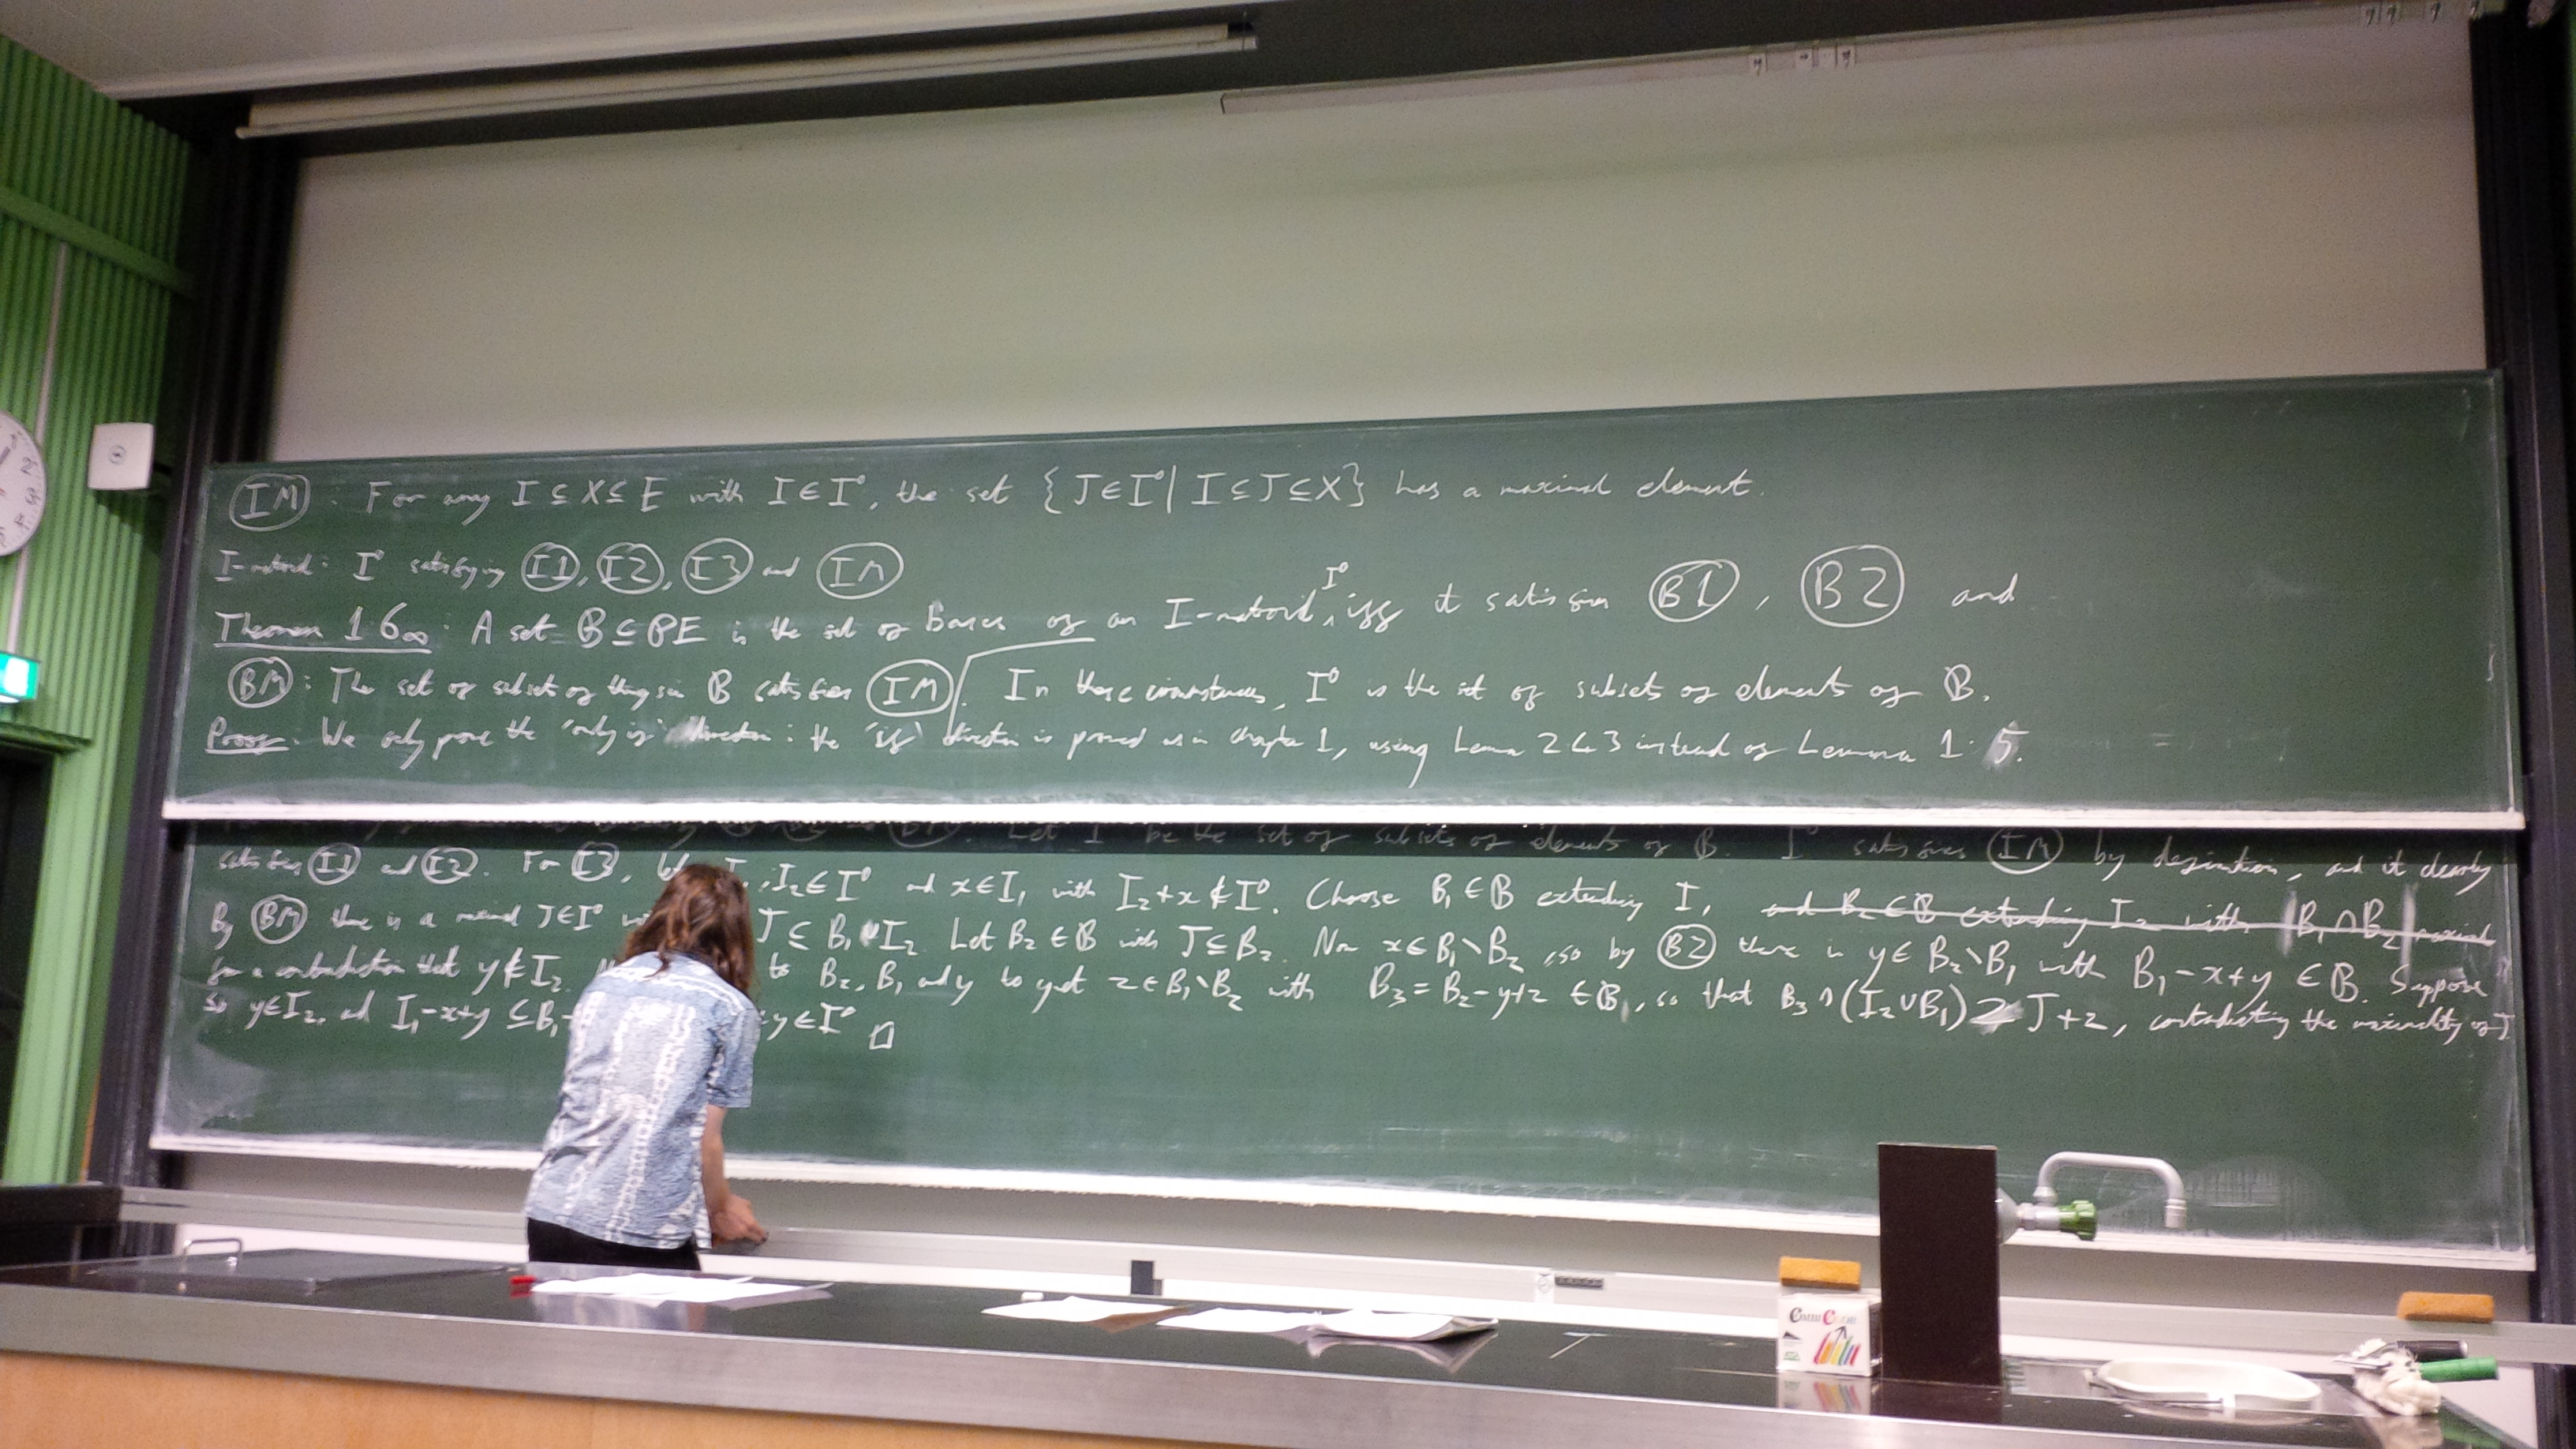 (IM) : For any I ⊆ X ⊆ E with I ∈ I°, the set {J ∈ I° | I ⊆ J ⊆ X} has a maximal element.
I-matroid: I° satisfying (I1), (I2), (I3) and (IM)
Theorem 1.6∞: A set B ⊆ PE is the set of bases of an I-matroid I° iff it satisfies (B1), (B2) and
(BM): The set of subsets of things in B satisfies (IM). In these circumstances, I° is the set of subsets of elements of B.
Proof: We only prove the 'only if' direction: the 'if' direction is proved as in chapter 1, using Lemma 2.4.3 instead of Lemma 1.5.
Let I° be the set of subsets of elements of B. I° satisfies (IM) by definition, and it clearly
satisfies (I1) and (I2). For (I3), let I₁, I₂ ∈ I° and x ∈ I₁ with I₂+x ∉ I°. Choose B₁ ∈ B extending I₁ and B₂ ∈ B extending I₂ with |B₁∩B₂| maximal
By (BM) there is a maximal J ∈ I° J ⊆ B₁∪I₂. Let B₂ ∈ B with J ⊆ B₂. Now x ∈ B₁\B₂, so by (B2) there is y ∈ B₂\B₁ with B₁-x+y ∈ B. Suppose
for a contradiction that y ∉ I₂. to B₂, B₁ and y to get z ∈ B₁\B₂ with B₃ = B₂-y+z ∈ B, so that B₃∩(I₂∪B₁) ⊇ J+z, contradicting the maximality of J
So y ∈ I₂, and I₁-x+y ⊆ B₁- y ∈ I° □
Combi Color